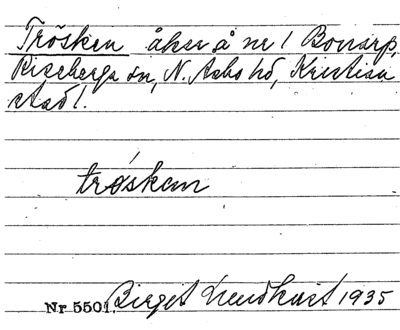 Trösken åker å nr 1 Bonarp,
Riseberga sn, N. Åsbo hd, Kristian
stads l.
trǿskɐn
Nr 5501. Birget Lundkvist 1935